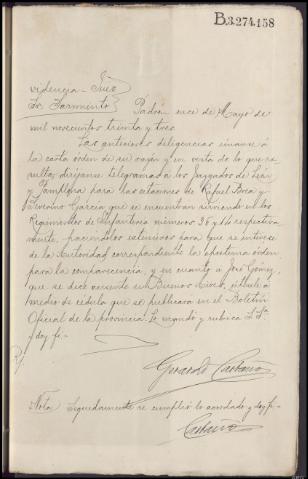 B.3.274.158
videncia - Juez
Sr. Sarmiento
Padrón once de Mayo de
mil novecientos treinta y tres.
Las anteriores diligencias unanse á
la carta orden de su razón y en vista de lo que re-
sulta diríjanse telegramas á los Juzgados de León
y Pamplona para las citaciones de Rafael y
Severino García que se encuentran sirviendo en los
Regimientos de Infantería números 36 y 14 respectiva-
mente, haciéndolos extensivos para que se interese
de la Autoridad correspondiente la oportuna orden
para la comparecencia, y en cuanto á José Gómez
que se dice ausente en Buenos Aires, cítesele por
medio de cédula que se publicará en el Boletín
Oficial de la provincia. Lo mandó y rubrica S. Sª.
y doy fe.-
Gerardo
Nota. Seguidamente se cumplió lo acordado y doy fe.-